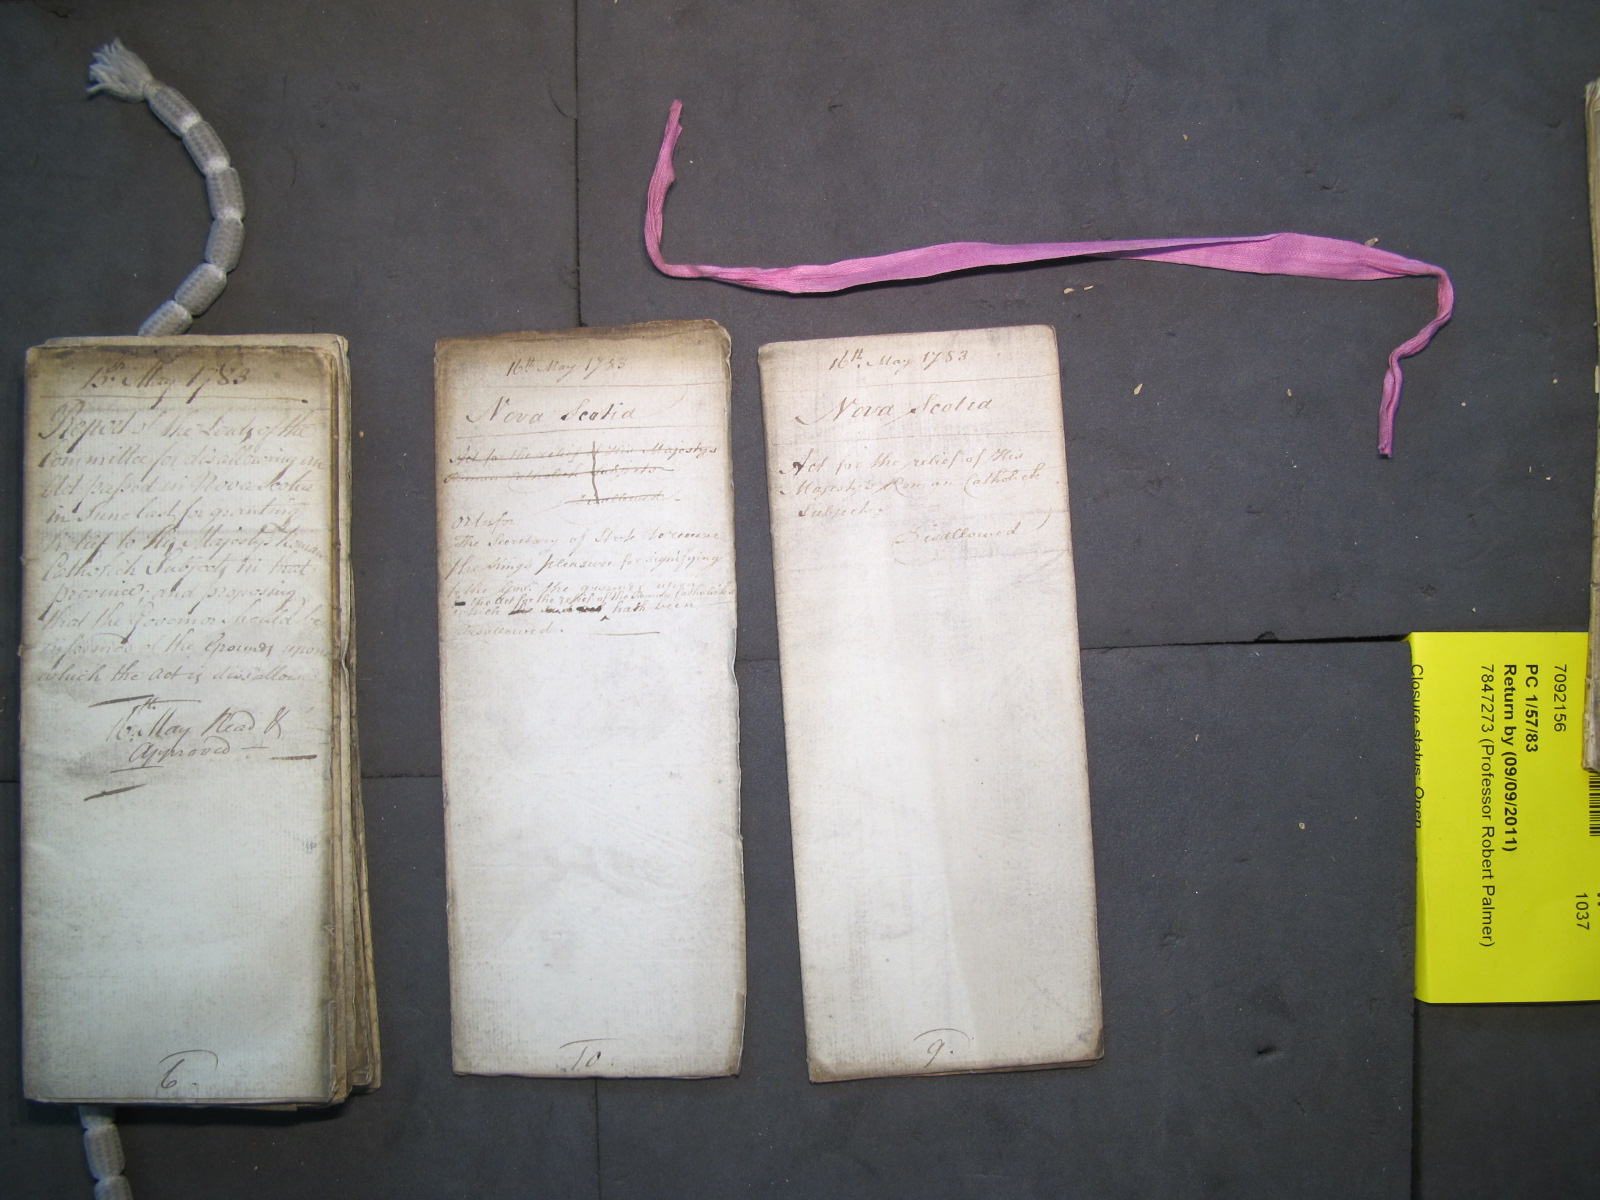 15th May 1783
Report of the Lords of the
Committee for disallowing an
Act passed in Nova Scotia
in June last for granting
relief to His Majesty's Roman
Catholick Subjects in that
province; and proposing
that the Governor should be
informed of the Grounds upon
which the Act is disallowed
16th May Read &
Approved
6.
16th May 1783
Nova Scotia
Act for the relief of His Majestys
Roman Catholick Subjects
Disallowed.
The Secretary of State to receive
the Kings pleasure for signifying
to the Govr. the grounds upon
the Act for the relief of the Roman Catholicks
which hath been
disallowed.
10.
16th May 1783
Nova Scotia
Act for the relief of His
Majesty's Roman Catholick
Subjects.
Disallowed
9.
7092156
PC 1/57/83
Return by (09/09/2011)
7847273 (Professor Robert Palmer)
Closure status: Open
1037